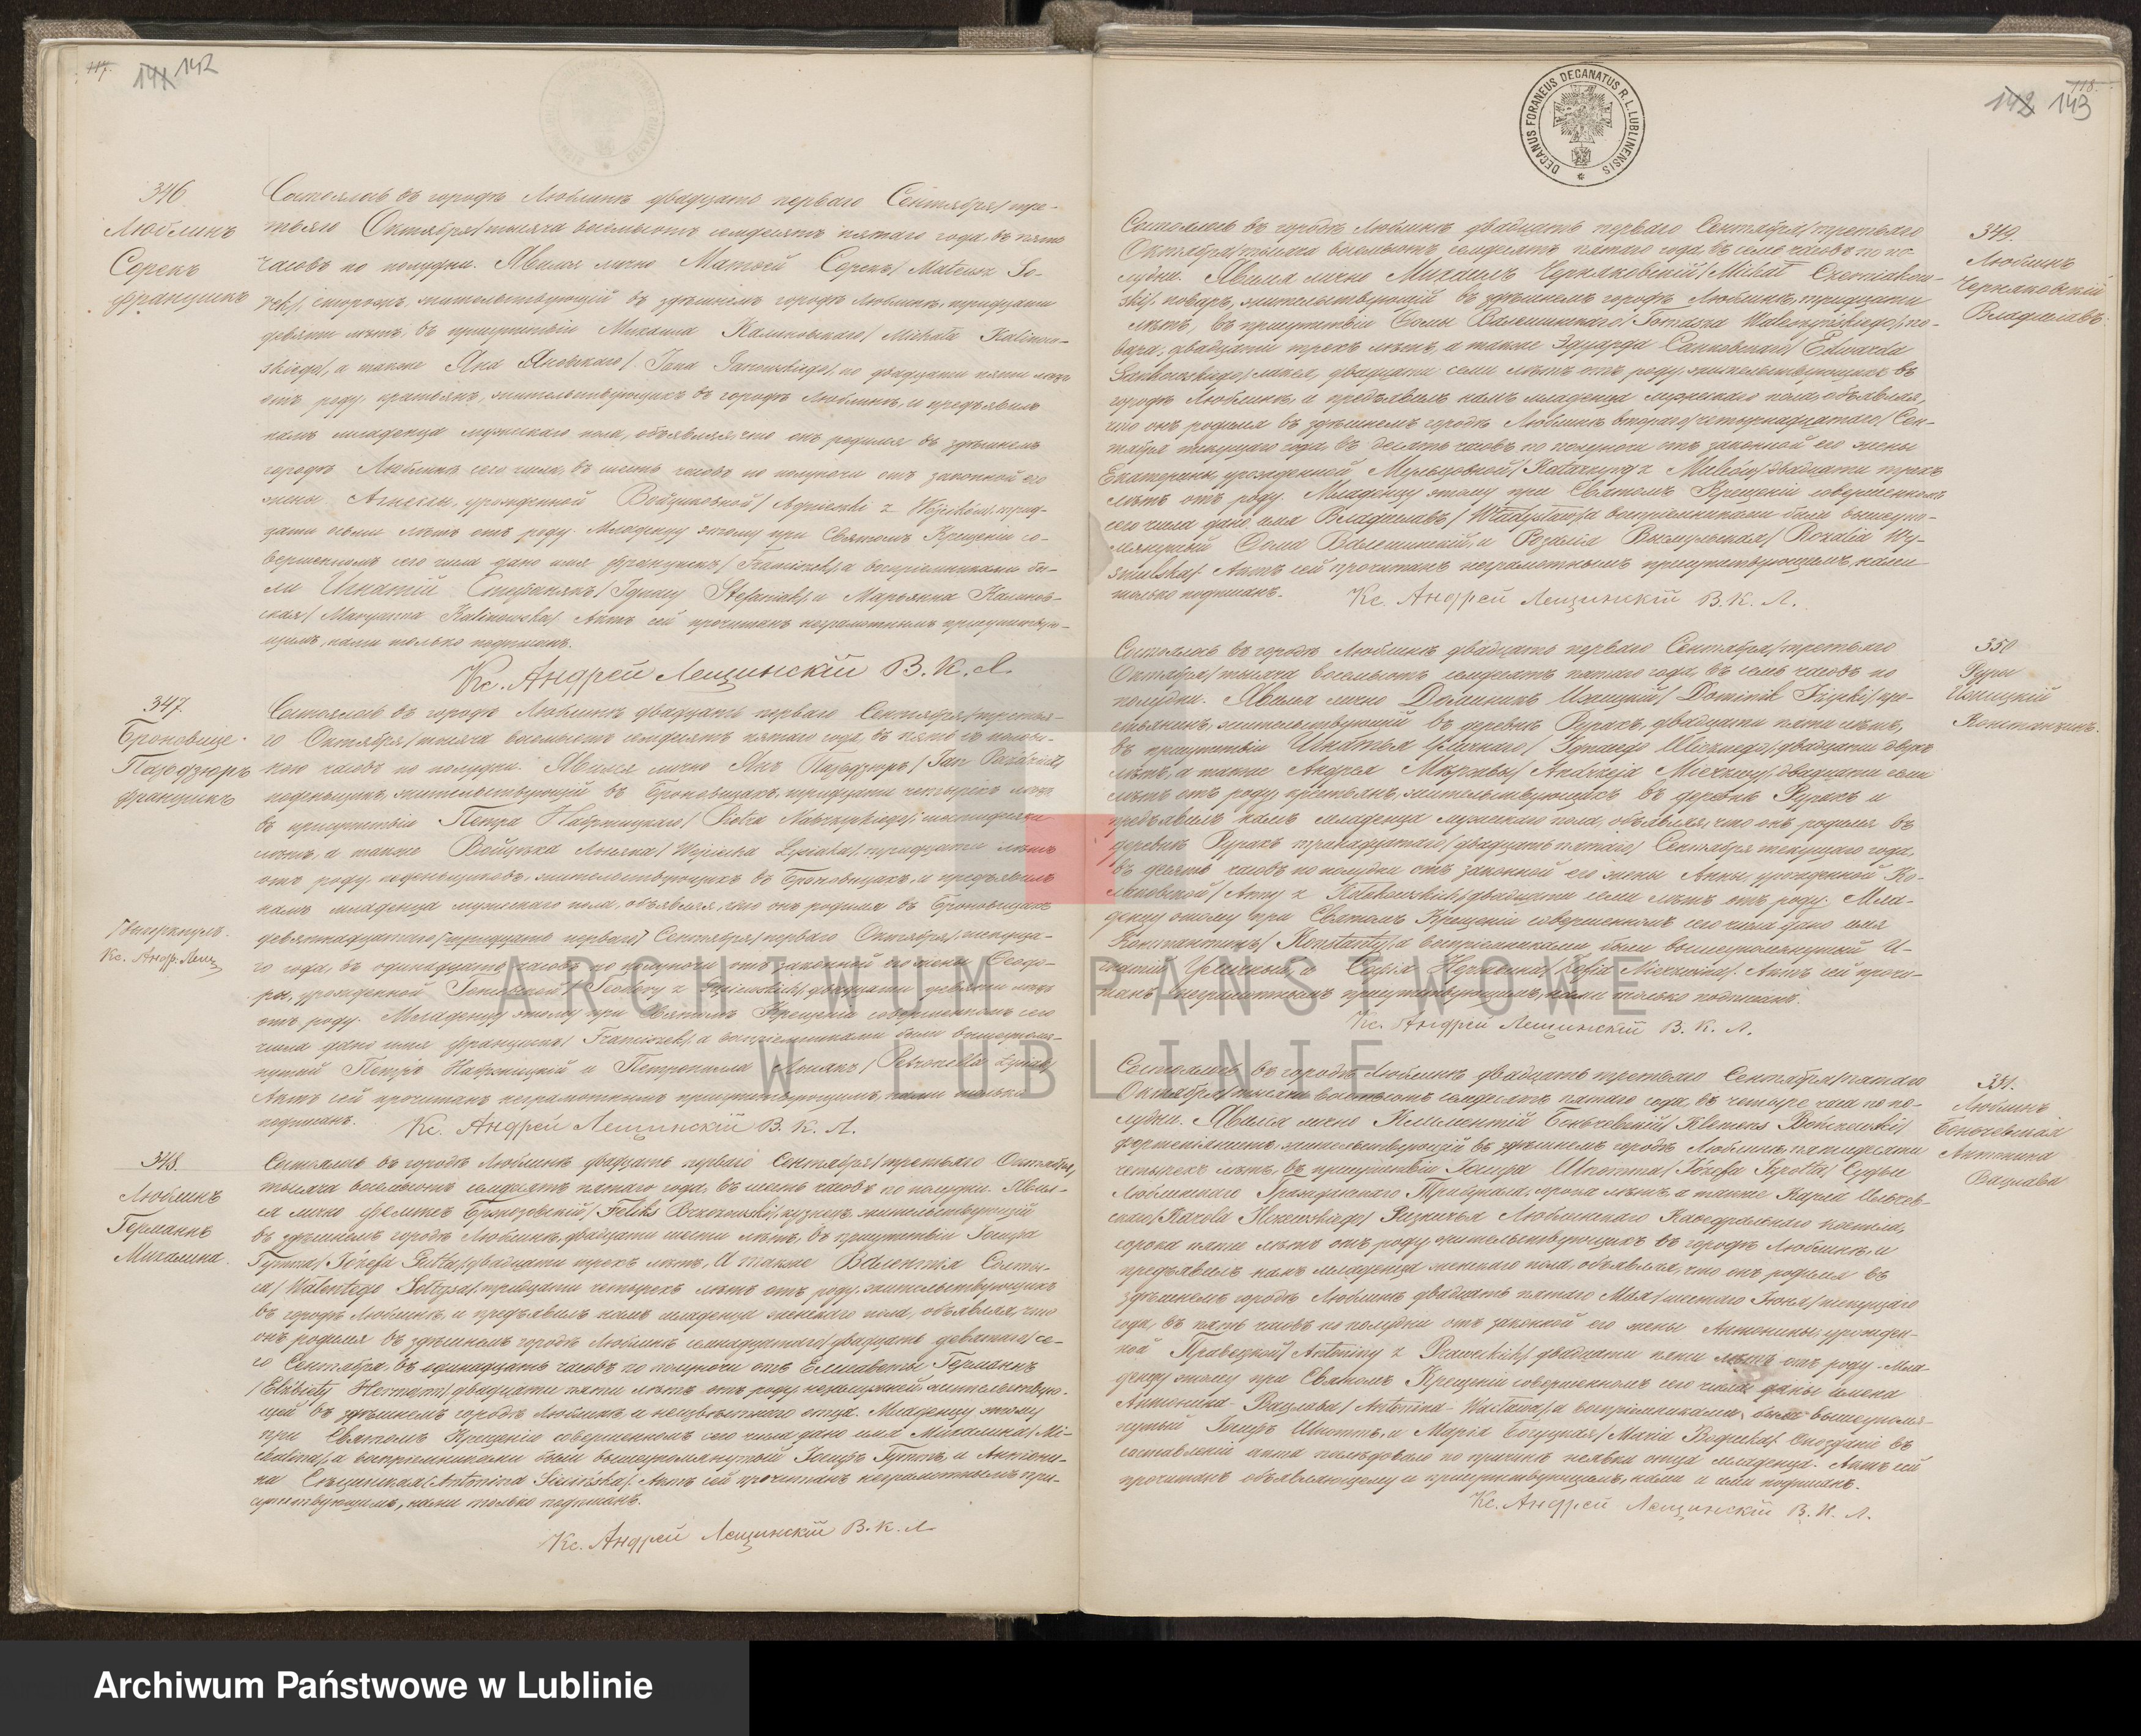 117.
141 142
346.
Люблинъ
Сорекъ
Францишекъ
Состоялось въ городѣ Люблинѣ двадцать перваго Сентября/тре-
тьяго Октября/тысяча восемьсотъ семдесятъ пятаго года, въ пять
часовъ по полудни. Явился лично Матвей Сорекъ/Mateusz So-
rek/, сторожъ, жительствующій въ здѣшнемъ городѣ Люблинѣ, тридцати
девяти лѣтъ, въ присутствіи Михаила Калиновскаго/Michała Kalinow-
skiego/, а также Яна Яновскаго/Jana Janowskiego/, по двадцати пяти лѣтъ
отъ роду, крестьянъ, жительствующихъ въ городѣ Люблинѣ, и предъявилъ
намъ младенца мужескаго пола, объявляя, что онъ родился въ здѣшнемъ
городѣ Люблинѣ сего числа, въ шесть часовъ по полуночи отъ законной его
жены Агнесы, урожденной Войциковной/Agnieszki z Wójcików/, трид-
цати осьми лѣтъ отъ роду. Младенцу этому при Святомъ Крещеніи со-
вершенномъ сего числа дано имя Францишекъ/Franciszek/, а воспріемниками бы-
ли Игнатій Стефанякъ/Ignacy Stefaniak/, и Марьянна Калинов-
ская/Maryanna Kalinowska/. Актъ сей прочитанъ неграмотнымъ присутствую-
щимъ, нами только подписанъ.
Кс. Андрей Лещинскій В. К. Л.
347.
Броновице.
Пазьдзюръ
Францишекъ
Состоялось въ городѣ Люблинѣ двадцать перваго Сентября/третья-
го Октября/тысяча восемьсотъ семдесятъ пятаго года, въ пять съ полови-
ною часовъ по полудни. Явился лично Янъ Пазьдзюръ/Jan Paździor/
поденьщикъ, жительствующій въ Броновицахъ, тридцати четырехъ лѣтъ
въ присутствіи Петра
лѣтъ, а также Войцѣха Лысяка/Wojciecha Łysiaka/, тридцати лѣтъ
отъ роду, поденьщиковъ, жительствующихъ въ Броновицахъ, и предъявилъ
намъ младенца мужескаго пола, объявляя, что онъ родился въ Броновицахъ
девятнадцатаго/тридцать перваго/ Сентября/перваго Октября/, текуща-
го года, въ одинадцать часовъ по полуночи отъ законной его жены Теодо-
ры, урожденной
отъ роду. Младенцу этому при Святомъ Крещеніи совершенномъ сего
числа дано имя Францишекъ/Franciszek/, а воспріемниками были вышеупомя-
нутый Петръ и Петронелла Лысякъ/Petronella Łysiak/
Актъ сей прочитанъ неграмотнымъ присутствующимъ, нами только
подписанъ. Кс. Андрей Лещинскій В. К. Л.
Кс. Андр. Лещ
348.
Люблинъ
Германнъ
Михалина.
Состоялось въ городѣ Люблинѣ двадцать перваго Сентября/третьяго Октября/
тысяча восемьсотъ семдесятъ пятаго года, въ шесть часовъ по полудни. Явил-
ся лично Феликсъ Бржозовскій/Feliks Brzozowski/, кузнецъ, жительствующій
въ здѣшнемъ городѣ Люблинѣ, двадцати шести лѣтъ, въ присутствіи Іосифа
двадцати трехъ лѣтъ, а также Валентія Солты-
са/Walentego Sołtysa/, тридцати четырехъ лѣтъ отъ роду, жительствующихъ
въ городѣ Люблинѣ, и предъявилъ намъ младенца женскаго пола, объявляя, что
онъ родился въ здѣшнемъ городѣ Люблинѣ семнадцатаго/двадцать девятаго/ се-
го Сентября, въ одинадцать часовъ по полуночи отъ Елисаветы Германнъ
/Elżbiety Hermann/, двадцати пяти лѣтъ отъ роду, незамужней, жительствую-
щей въ здѣшнемъ городѣ Люблинѣ и неизвѣстнаго отца. Младенцу этому
при Святомъ Крещеніи совершенномъ сего числа дано имя Михалина/Mi-
chalina/, а воспріемниками были вышеупомянутый Іосифъ и Антони-
на
сутствующимъ, нами только подписанъ.
Кс. Андрей Лещинскій В. К. Л.
DECANUS FORANEUS DECANATUS R. L. LUBLINENSIS
118.
142 143
349.
Люблинъ
Черняковскій
Владиславъ.
Состоялось въ городѣ Люблинѣ двадцать перваго Сентября/третьяго
Октября/тысяча восемьсотъ семдесятъ пятаго года, въ семь часовъ по по-
лудни. Явился лично Михаилъ Черняковскій/Michał Czerniakow-
ski/, поваръ, жительствующій въ здѣшнемъ городѣ Люблинѣ, тридцати
лѣтъ, въ присутствіи Ѳомы Валешинскаго/Tomasza Waleszyńskiego/, по-
вара, двадцати трехъ лѣтъ, а также Эдуарда Санковскаго/Edwarda
Sankowskiego/, лакея, двадцати семи лѣтъ отъ роду, жительствующихъ въ
городѣ Люблинѣ, и предъявилъ намъ младенца мужескаго пола, объявляя,
что онъ родился въ здѣшнемъ городѣ Люблинѣ втораго/четырнадцатаго/ Сен-
тября текущаго года, въ десять часовъ по полуночи отъ законной его жены
Екатерины, урожденной двадцати трехъ
лѣтъ отъ роду. Младенцу этому при Святомъ Крещеніи совершенномъ
сего числа дано имя Владиславъ/Władysław/, а воспріемниками были вышеупо-
мянутый Ѳома Валешинскій, и Розалія
Актъ сей прочитанъ неграмотнымъ присутствующимъ, нами
только подписанъ. Кс. Андрей Лещинскій В. К. Л.
350
Руры
Ижицкій
Константинъ.
Состоялось въ городѣ Люблинѣ двадцать перваго Сентября/третьяго
Октября/тысяча восемьсотъ семдесятъ пятаго года, въ семь часовъ по
полудни. Явился лично Доминикъ Ижицкій/Dominik Iżycki/, кре-
стьянинъ, жительствующій въ деревнѣ Рурахъ, двадцати пяти лѣтъ,
въ присутствіи Игнатія двадцати двухъ
лѣтъ, а также Андрея двадцати семи
лѣтъ отъ роду, крестьянъ, жительствующихъ въ деревнѣ Рурахъ и
предъявилъ намъ младенца мужескаго пола, объявляя, что онъ родился въ
деревнѣ Рурахъ тринадцатаго/двадцать пятаго/ Сентября текущаго года,
въ десять часовъ по полудни отъ законной его жены Анны, урожденной
двадцати семи лѣтъ отъ роду. Мла-
денцу оному при Святомъ Крещеніи совершенномъ сего числа дано имя
Константинъ/Konstanty/, а воспріемниками были вышеупомянутый И-
гнатій и Софія Актъ сей прочи-
танъ неграмотнымъ присутствующимъ, нами только подписанъ.
Кс. Андрей Лещинскій В. К. Л.
351.
Люблинъ
Беньчевская
Антонина
Вацлава
Состоялось въ городѣ Люблинѣ двадцать третьяго Сентября/пятаго
Октября/тысяча восемьсотъ семдесятъ пятаго года, въ четыре часа по по-
лудни. Явился лично Климентій
жительствующій въ здѣшнемъ городѣ Люблинѣ, пятидесяти
четырехъ лѣтъ, въ присутствіи Іосифа Судьи
Люблинскаго Гражданскаго Трибунала, сорока лѣтъ, а также Карла
Люблинскаго Каѳедральнаго костела,
сорока пяти лѣтъ отъ роду, жительствующихъ въ городѣ Люблинѣ, и
предъявилъ намъ младенца женскаго пола, объявляя, что онъ родился въ
здѣшнемъ городѣ Люблинѣ двадцать пятаго Мая/шестаго Іюня/текущаго
года, въ пять часовъ по полудни отъ законной его жены Антонины, урожден-
ной Правецкой/Antoniny z Praweckich/, двадцати пяти лѣтъ отъ роду. Мла-
денцу этому при Святомъ Крещеніи совершенномъ сего числа даны имена
Антонина-Вацлава/Antonina-Wacława/, а воспріемниками были вышеупомя-
нутый Іосифъ и Марія Богуцкая/Maria Bogucka/. Опозданіе въ
составленіи акта послѣдовало по причинѣ неявки отца младенца. Актъ сей
прочитанъ объявляющему и присутствующимъ, нами и ими подписанъ.
Кс. Андрей Лещинскій В. К. Л.
ARCHIWUM PAŃSTWOWE
W LUBLINIE
Archiwum Państwowe w Lublinie